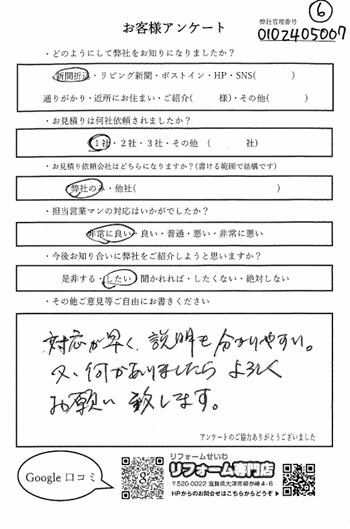 ⑥
お客様アンケート
弊社管理番号
0102405007
・どのようにして弊社をお知りになりましたか？
新聞折込・リビング新聞・ポストイン・HP・SNS(　　　)
通りがかり・近所にお住まい・ご紹介(　　　様)・その他(　　　)
・お見積りは何社依頼されましたか？
1社・2社・3社・その他　(　　　社)
・お見積り依頼会社はどちらになりますか？(書ける範囲で結構です)
弊社のみ・他社(　　　)
・担当営業マンの対応はいかがでしたか？
非常に良い・良い・普通・悪い・非常に悪い
・今後お知り合いに弊社をご紹介しようと思いますか？
是非する・したい・聞かれれば・したくない・絶対しない
・その他ご意見等ご自由にお書きください
対応が早く、説明も分かりやすい。
又、何かありましたら よろしく
お願い 致します。
アンケートのご協力ありがとうございました
Google 口コミ
リフォームせいわ
リフォーム専門店
〒520-0022 滋賀県大津市柳が崎4-6
HPからのお問合せはこちらからどうぞ▶